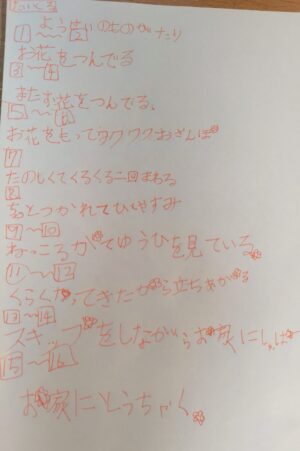 たいとる
ようせいのものがたり
1～2
お花をつんでる
3～4
またお花をつんでる、
5～6
お花をもってワクワクおさんぽ
7
たのしくてくるくる二回まわる
8
ちょとつかれてひとやすみ
9～10
ねっころがてゆうひを見ている
11～12
くらくなってきたから立ちあがる
13～14
スキップをしながらお家にしゅぱつ
15～16
お家にとうちゃく